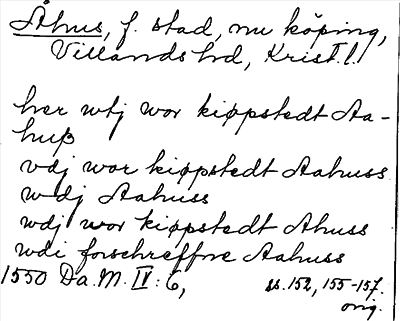 Åhus, f. stad, nu köping,
Villands hd, Krist. l.
her wtj wor kiøpstedt Aa-
huß
vdj wor kiøpstedt Aahuss
wdj Aahuss
wdj wor kiøpstedt Ahuss
wdi forschreffne Aahuss
1550 Da. M. IV: 6, ss. 152, 155-157.
orig.